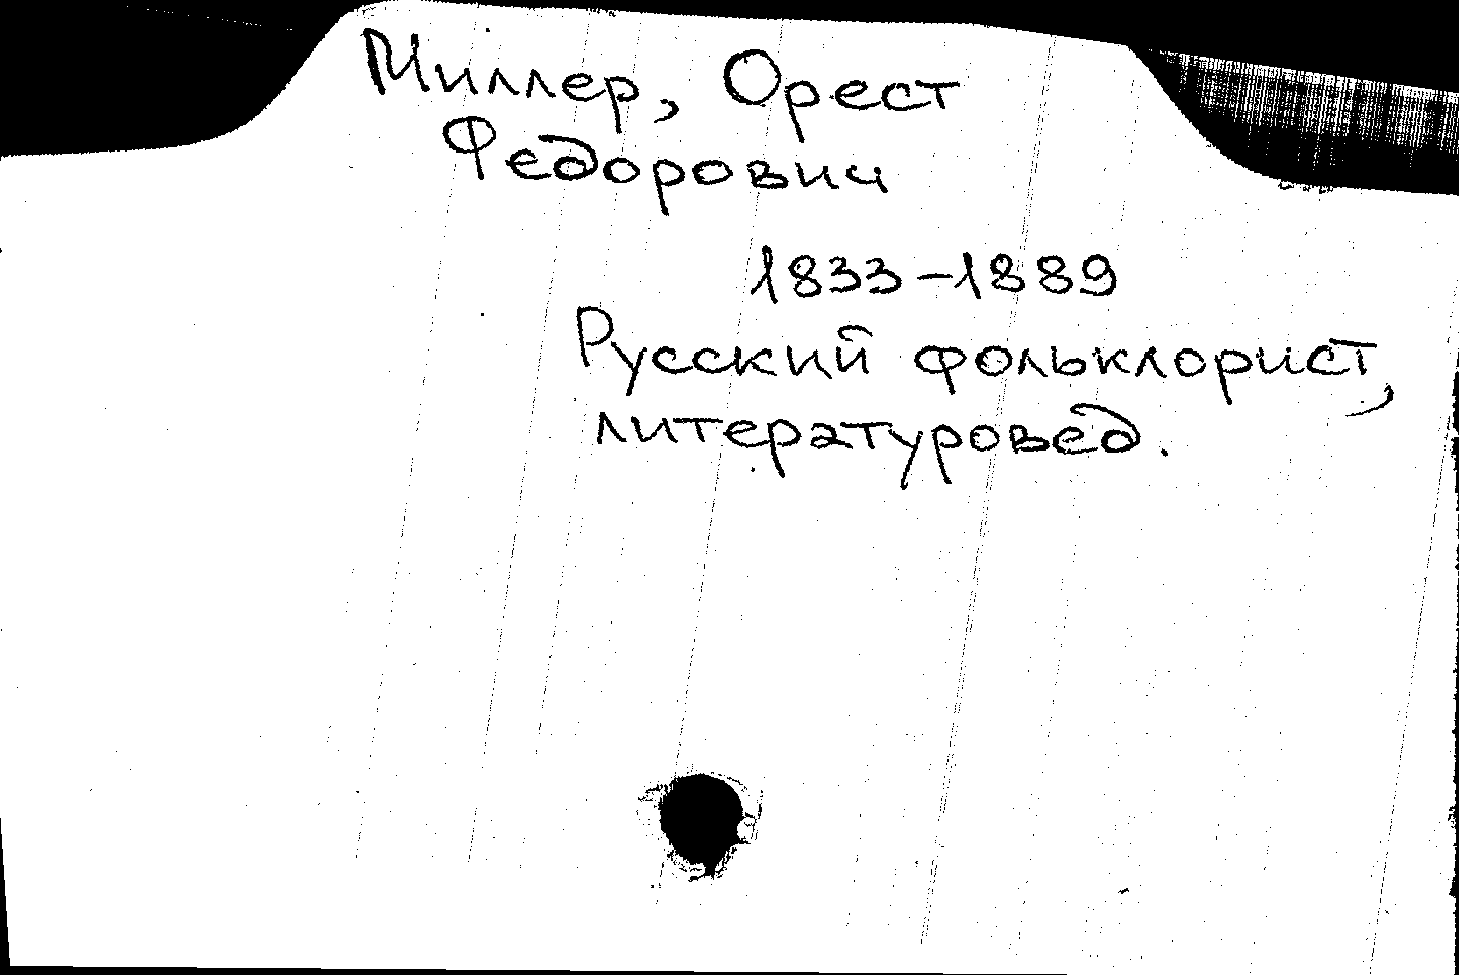 Миллер, Орест
Федорович
1833-1889
Русский фольклорист,
литературовед.